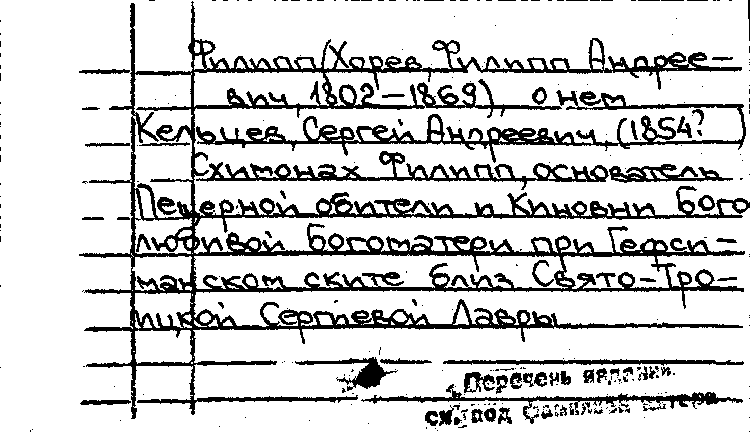 Филипп (Хорев, Филипп Андрее-
вич, 1802-1869), о нем
Кельцев, Сергей Андреевич, (1854? )
Схимонах Филипп, основатель
Пещерной обители и Киновии Бого
любивой Богоматери при Гефси-
манском ските близ Свято-Тро-
ицкой Сергиевой Лавры
Перечень изданий
см. под фамилией автора